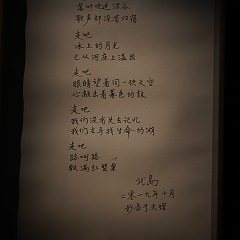 落叶吹进深谷
歌声却没有归宿
走吧
冰上的月光
已从河床上溢出
走吧
眼睛望着同一块天空
心敲击着暮色的鼓
走吧
我们没有失去记忆
我们去寻找生命的湖
走吧
路呵路
飘满红罂粟
北岛
二零一九年十月
于大理